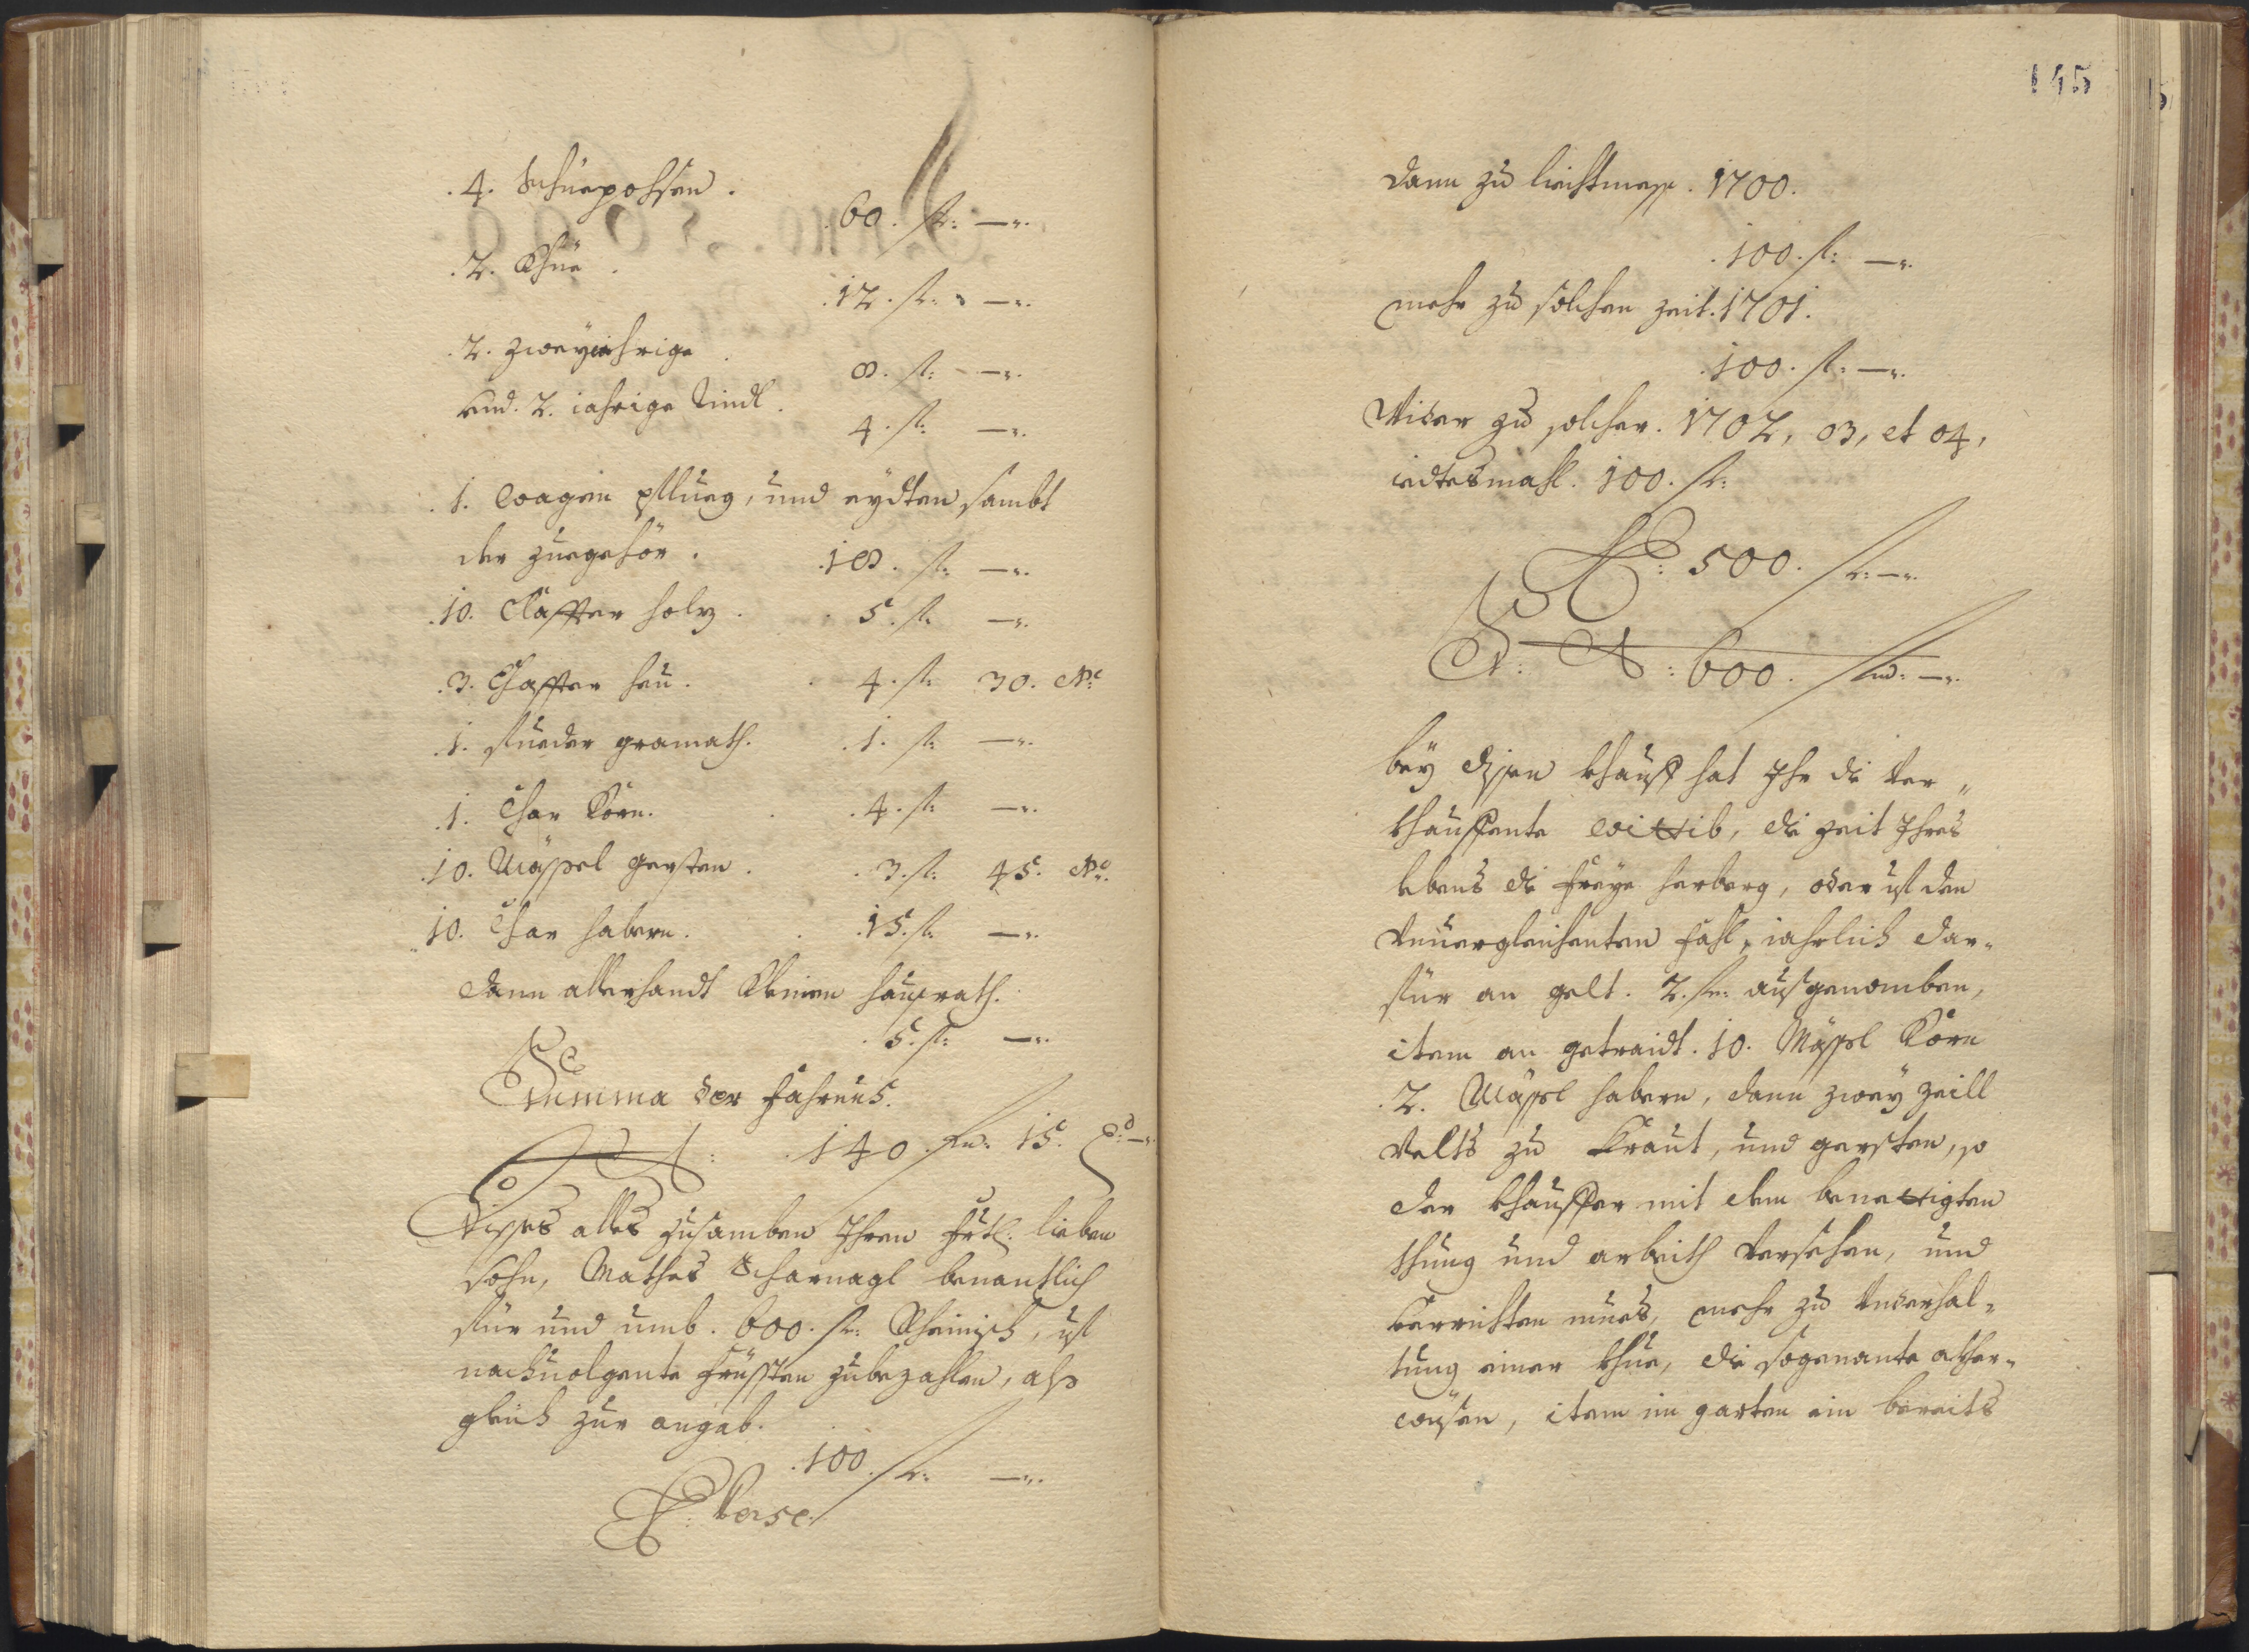 .4. Schuepohsen.
.60. fl: —".
.2. Khüe.
.12. fl: —".
.2. zweyiehrige
8. fl: —".
und. 2. iahrige Rindl.
4. fl: —".
.1. wagen pflueg, und eydten sambt
der zuegehör. .18. fl: —".
.10. Claffter holz. 5. fl: —".
.3. Claffter heu. 4. fl: 30. kr.
.1. Fueder gramath. .1. fl: —".
.1. Char Korn. .4. fl: —".
.10. Mässel gersten. .3. fl: 45. kr.
10. Char habern. .15. fl: —".
dann allerhandt kleinen haußrath.
.5. fl: —".
Summa der Fahrnus.
.140. fl: 15. kr.
Disses alles zusamben Ihren frtl: lieben
sohn, Mathes Scharnagl benantlich
für und umb. 600. fl: Rheinisch, uf
nachuolgente Früssten zubezahlen, alß
gleich zur angab.
.100. fl: —".
verse
145
dann zu liechtmess. 1700.
.100. fl: —".
mehr zu solchen zeit. 1701.
.100. fl: —".
Wider zu solcher. 1702, 03, et 04,
iedtesmahl. 100. fl:
500. fl: —".
600. fl: —".
bey dissen khauff hat Ihr die ver„
khauffente wittib, die zeit Ihres
lebens die freye herberg, oder uf den
unuergleichenten fahl, iahrlich dar„
für an gelt. 2. fl: ausgenomben,
item an getraidt. 10. Mässel Korn
.2. Mässel habern, dann zwey zeill
velts zu Kraut, und gersten, so
der khauffer mit dem benettigten
thung und arbeith versehen, und
verrichten mues, mehr zu underhal„
tung einer khue, die sogenante acker„
wisen, item im garten ein bereits